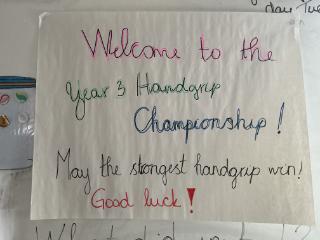 day Tue
Welcome to the
Year 3 Handgrip
Championship!
May the strongest handgrip win!
Good luck!